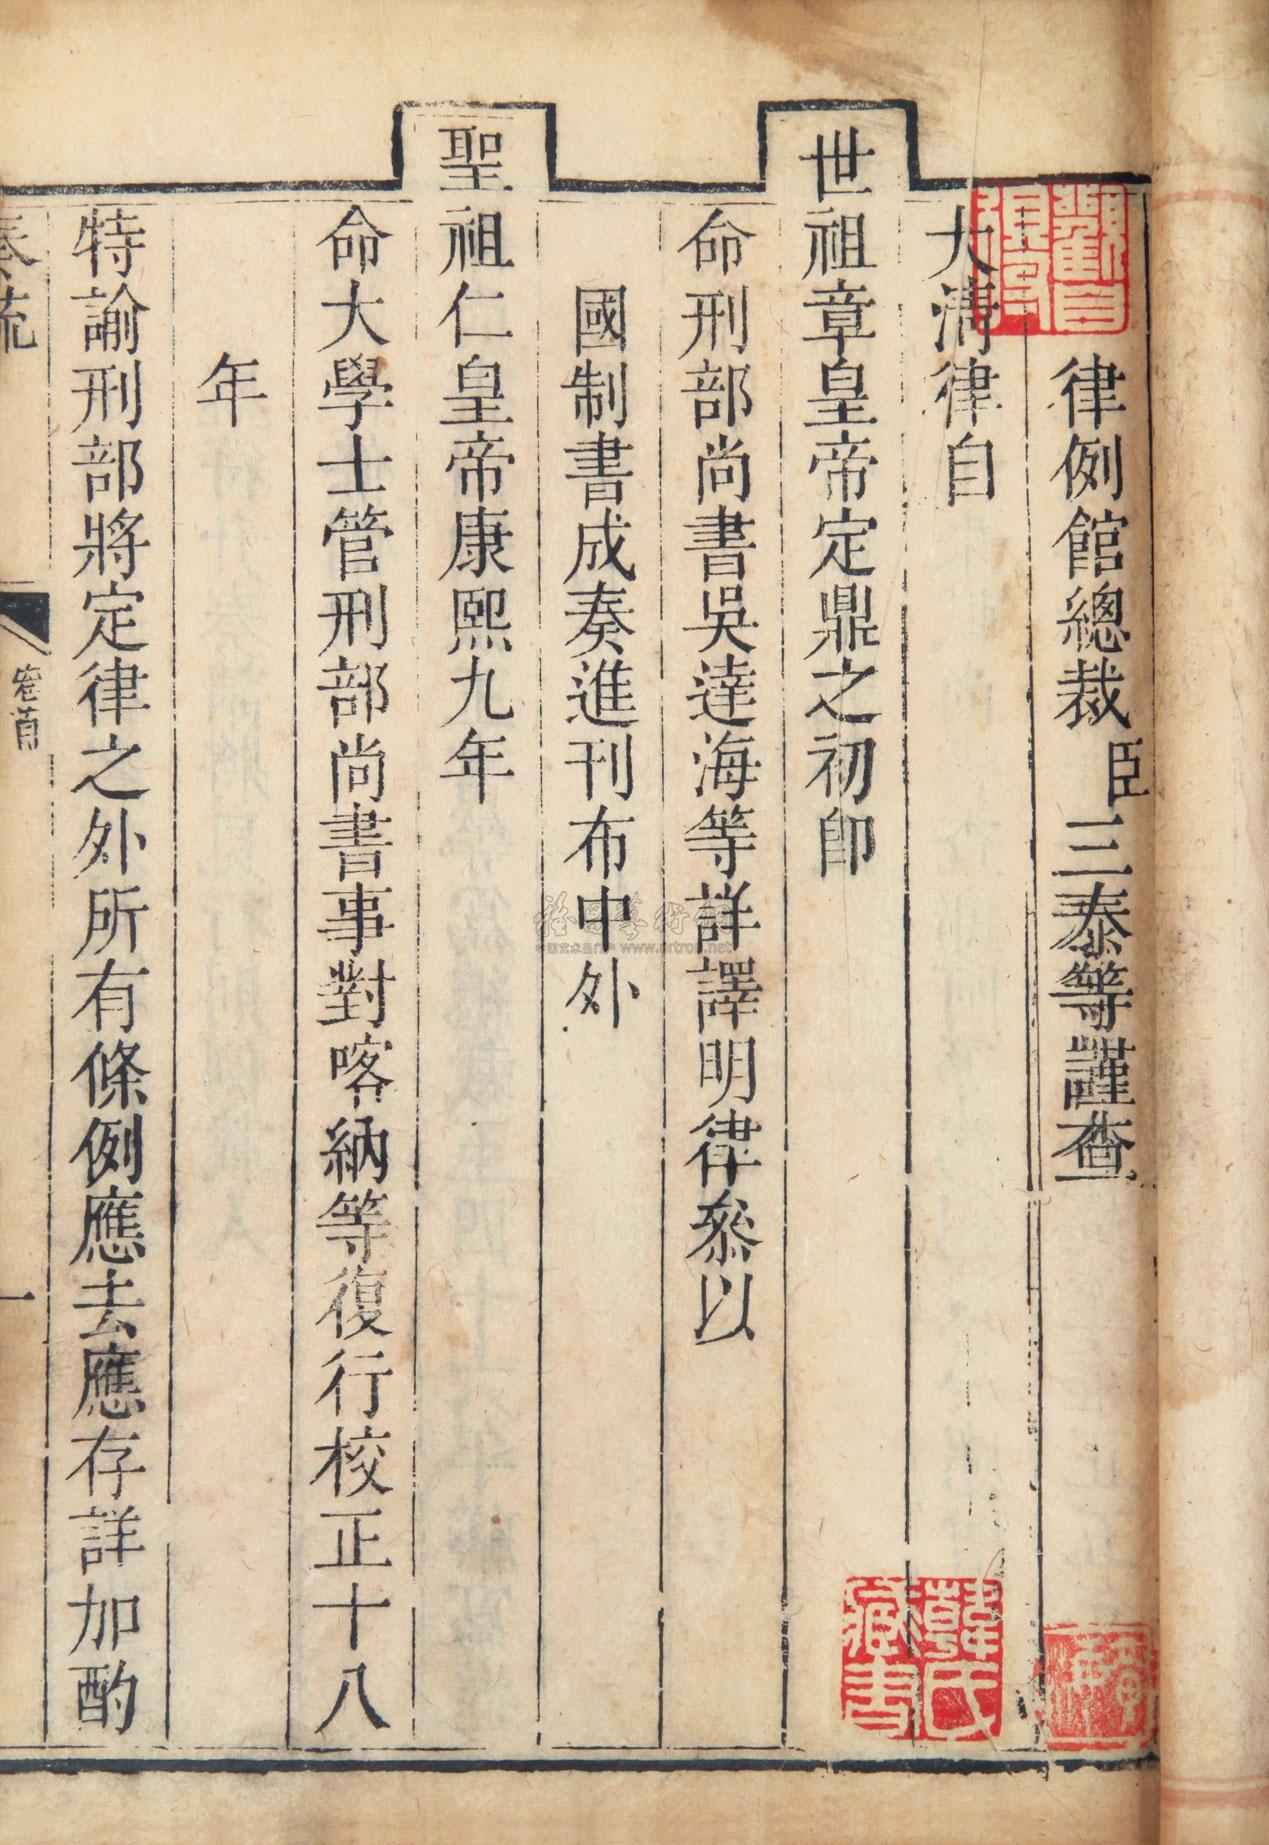 律例館總裁臣三泰等謹查
大清律自
世祖章皇帝定鼎之初卽
命刑部尚書吳達海等詳譯明律叅以
國制書成奏進刊布中外
聖祖仁皇帝康熙九年
命大學士管刑部尚書事對喀納等復行校正十八
年
特諭刑部將定律之外所有條例應去應存詳加酌
奏疏
卷首
一
韓氏
藏書
www.artron.net